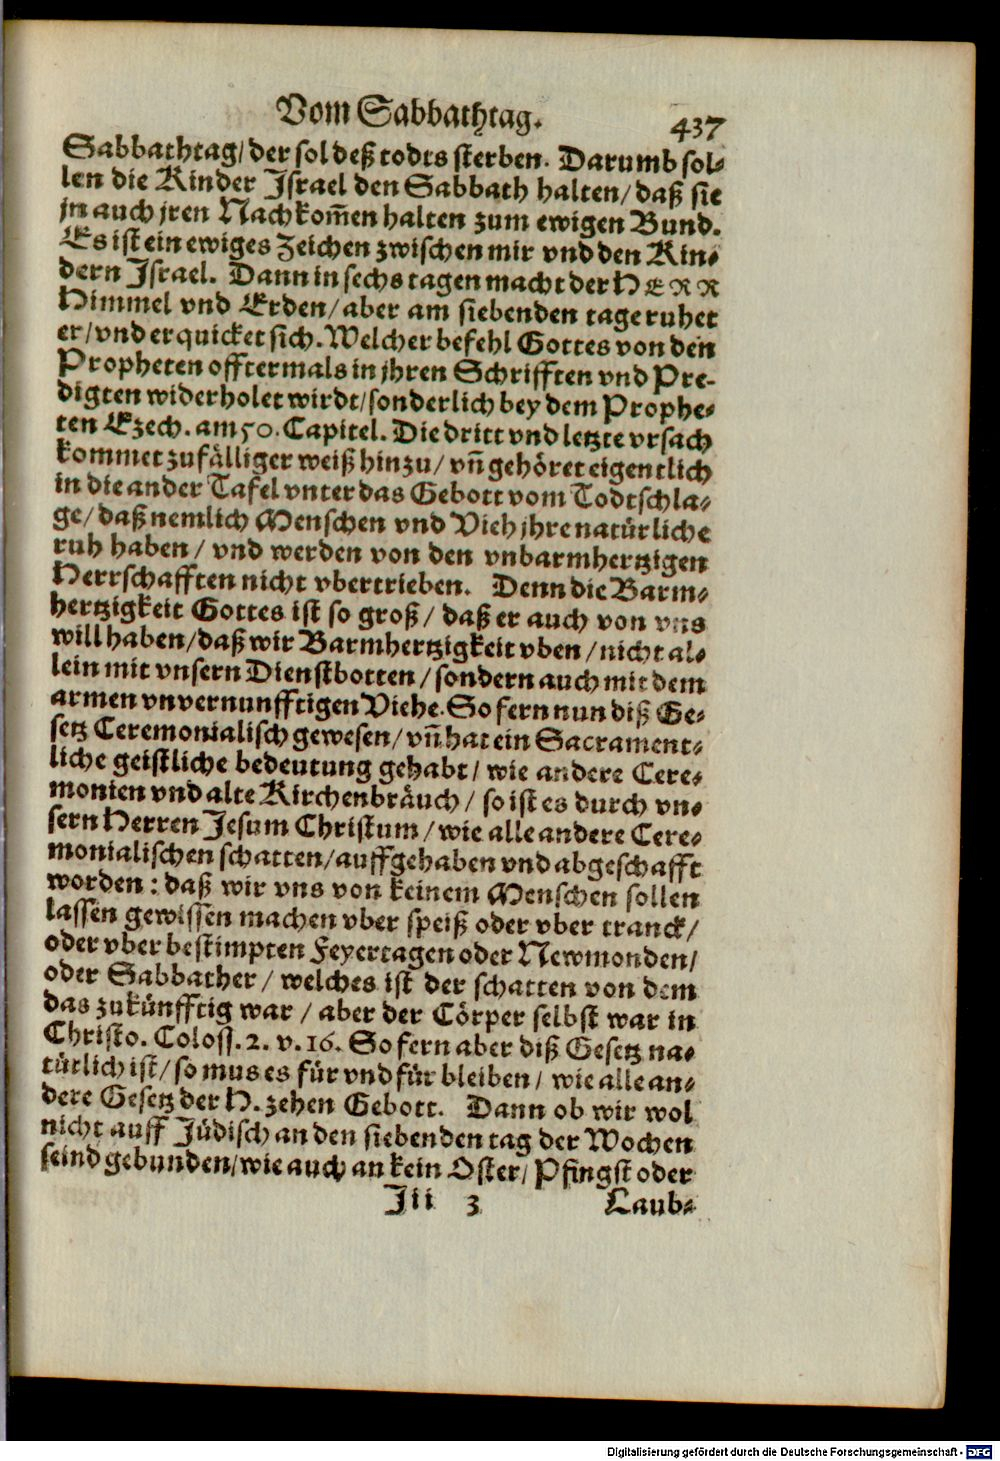 Vom Sabbathtag.
437
Sabbathtag/ der sol deß todts sterben. Darumb sol-
len die Kinder Israel den Sabbath halten/ daß sie
jn auch jren Nachkom̃en halten zum ewigen Bund.
Es ist ein ewiges Zeichen zwischen mir vnd den Kin-
dern Israel. Dann in sechs tagen macht der HERR
Himmel vnd Erden/ aber am siebenden tage ruhet
er/ vnd erquicket sich. Welcher befehl Gottes von den
Propheten offtermals in jhren Schrifften vnd Pre-
digten widerholet wirdt/ sonderlich bey dem Prophe-
ten Ezech. am 50. Capitel. Die dritt vnd letzte vrsach
kommet zufälliger weiß hinzu/ vñ gehöret eigentlich
in die ander Tafel vnter das Gebott vom Todtschla-
ge/ daß nemlich Menschen vnd Vieh jhre natürliche
ruh haben/ vnd werden von den vnbarmhertzigen
Herrschafften nicht vbertrieben. Denn die Barm-
hertzigkeit Gottes ist so groß/ daß er auch von vns
will haben/ daß wir Barmhertzigkeit vben/ nicht al-
lein mit vnsern Dienstbotten/ sondern auch mit dem
armen vnvernunfftigen Viehe. So fern nun diß Ge-
setz Ceremonialisch gewesen/ vñ hat ein Sacrament-
liche geistliche bedeutung gehabt/ wie andere Cere-
monien vnd alte Kirchenbräuch/ so ist es durch vn-
sern Herren Jesum Christum/ wie alle andere Cere-
monialischen schatten/ auffgehaben vnd abgeschafft
worden: daß wir vns von keinem Menschen sollen
lassen gewissen machen vber speiß oder vber tranck/
oder vber bestimpten Feyertagen oder Newmonden/
oder Sabbather/ welches ist der schatten von dem
das zukünfftig war/ aber der Cörper selbst war in
Christo. Coloss. 2. v. 16. So fern aber diß Gesetz na-
türlich ist/ so mus es für vnd für bleiben/ wie alle an-
dere Gesetz der H. zehen Gebott. Dann ob wir wol
nicht auff Jüdisch an den siebenden tag der Wochen
seind gebunden/ wie auch an kein Oster/ Pfingst oder
Jii 3
Laub-
Digitalisierung gefördert durch die Deutsche Forschungsgemeinschaft - DFG